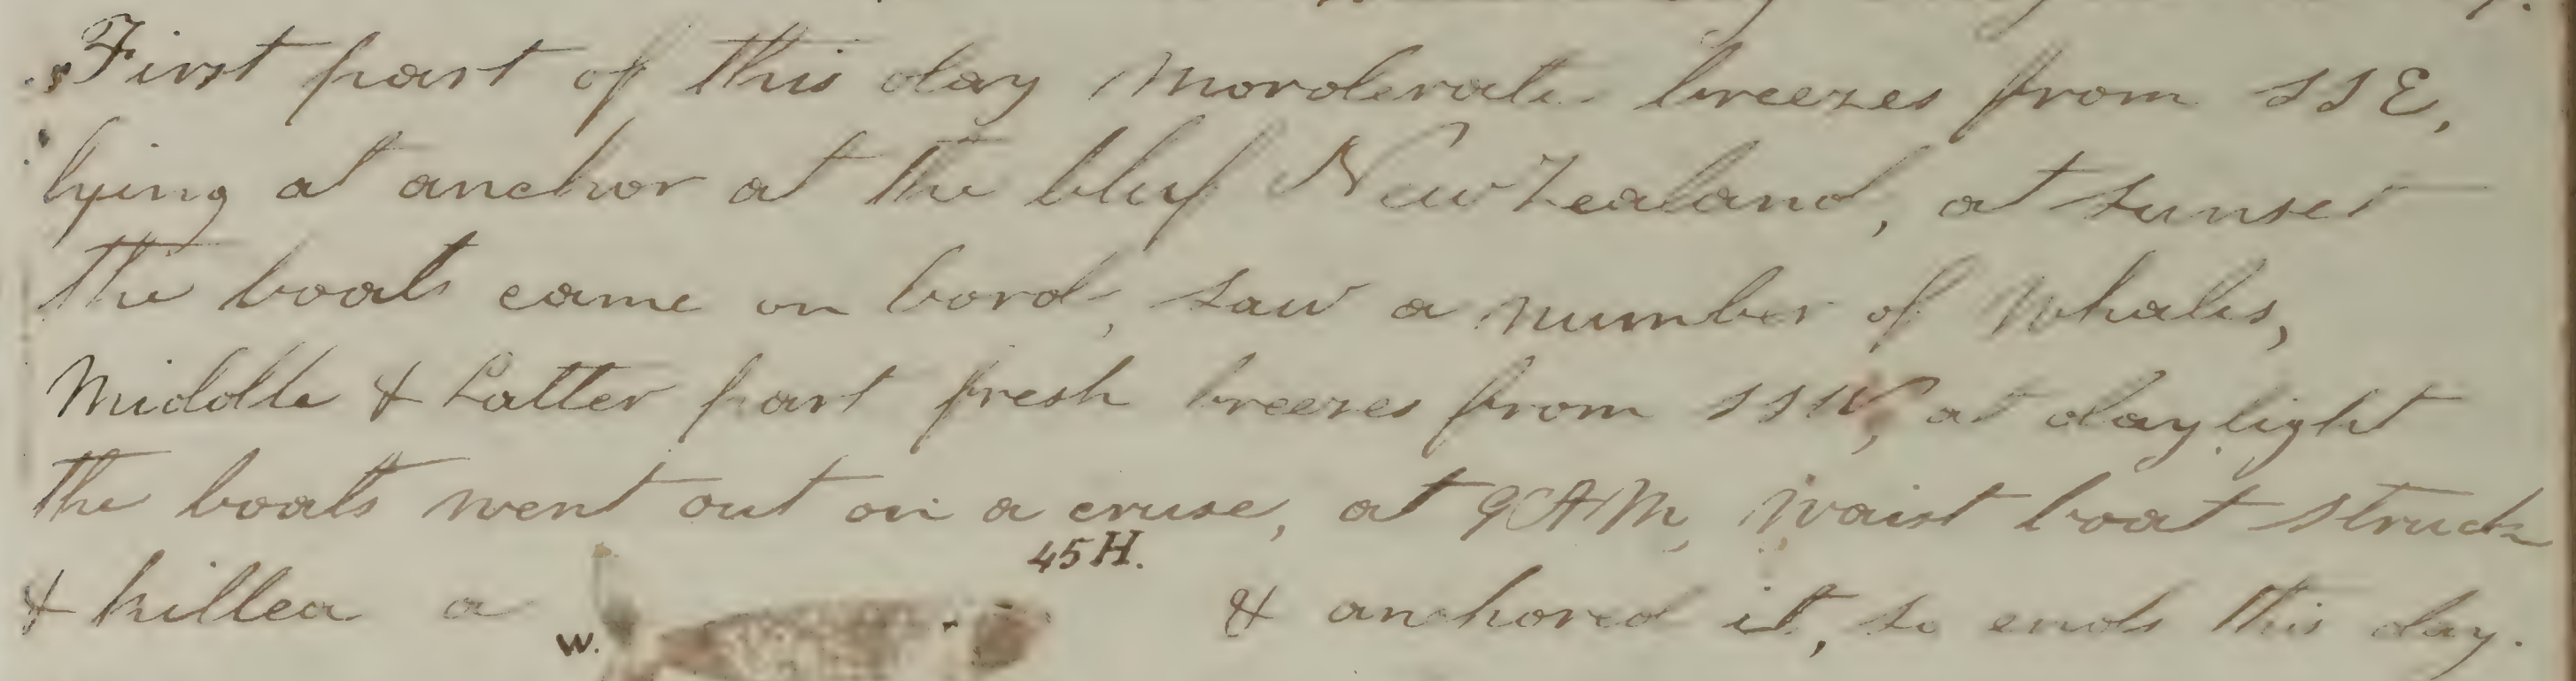 First part of this day Morderate breezes from SSE,
lying at anchor at the bluf New Zealand, at sunset
the boats came on bord, saw a number of Whales,
Middle & Latter part fresh breezes from SSW, at daylight
the boats went out on a cruse, at 9 AM, Waist boat struck
& killed a W. 45 H. & anchored it, so ends this day.